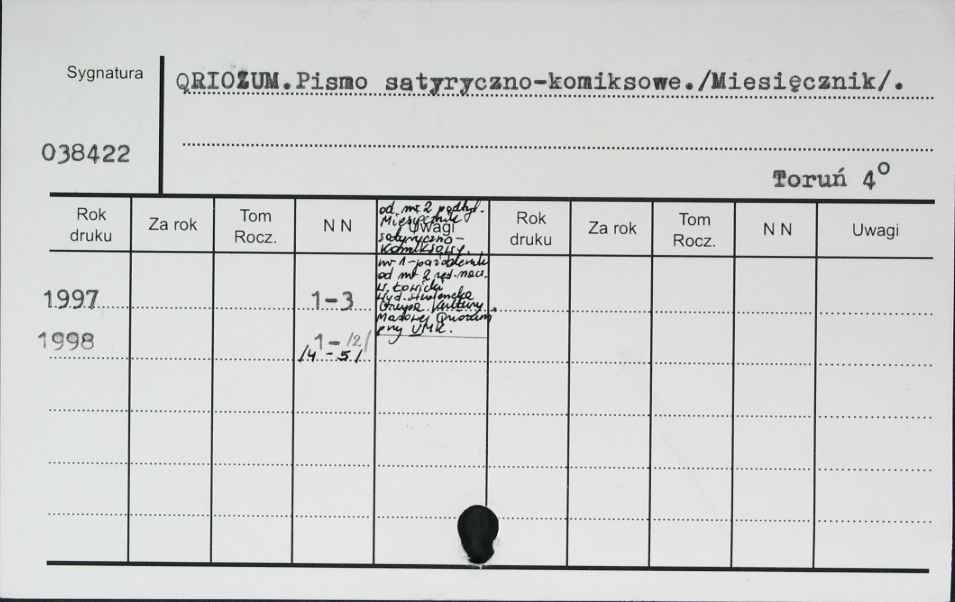 Sygnatura
QRIOZUM.Pismo satyryczno-komiksowe./Miesięcznik/.
038422
Toruń 4°
Rok druku Za rok Tom Rocz. N N Uwagi Rok druku Za rok Tom Rocz. N N Uwagi
od nr 2 podtyt.
Miesięcznik
satyryczno-
komiksowy.
nr 1-październik
od nr 2 red. nacz.
W. Łowicki
Wyd. Studencka
Grupa Kultury
Masowej Qriozum
przy UMK.
1997 1-3
1998 1-/2/
/4-5/